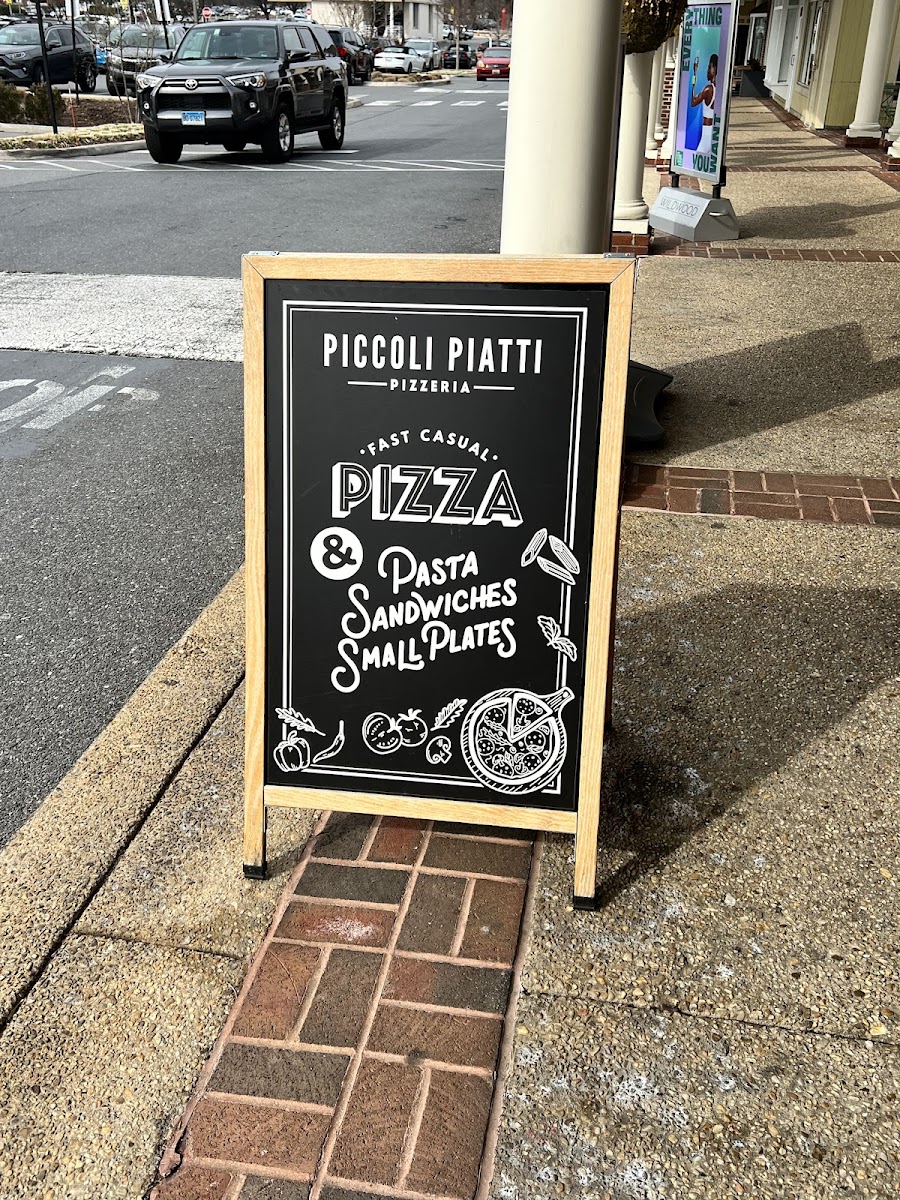 PICCOLI PIATTI
PIZZERIA
·FAST CASUAL·
PIZZA
&
PASTA
SANDWICHES
SMALL PLATES
EVERYTHING
YOU WANT
WILDWOOD